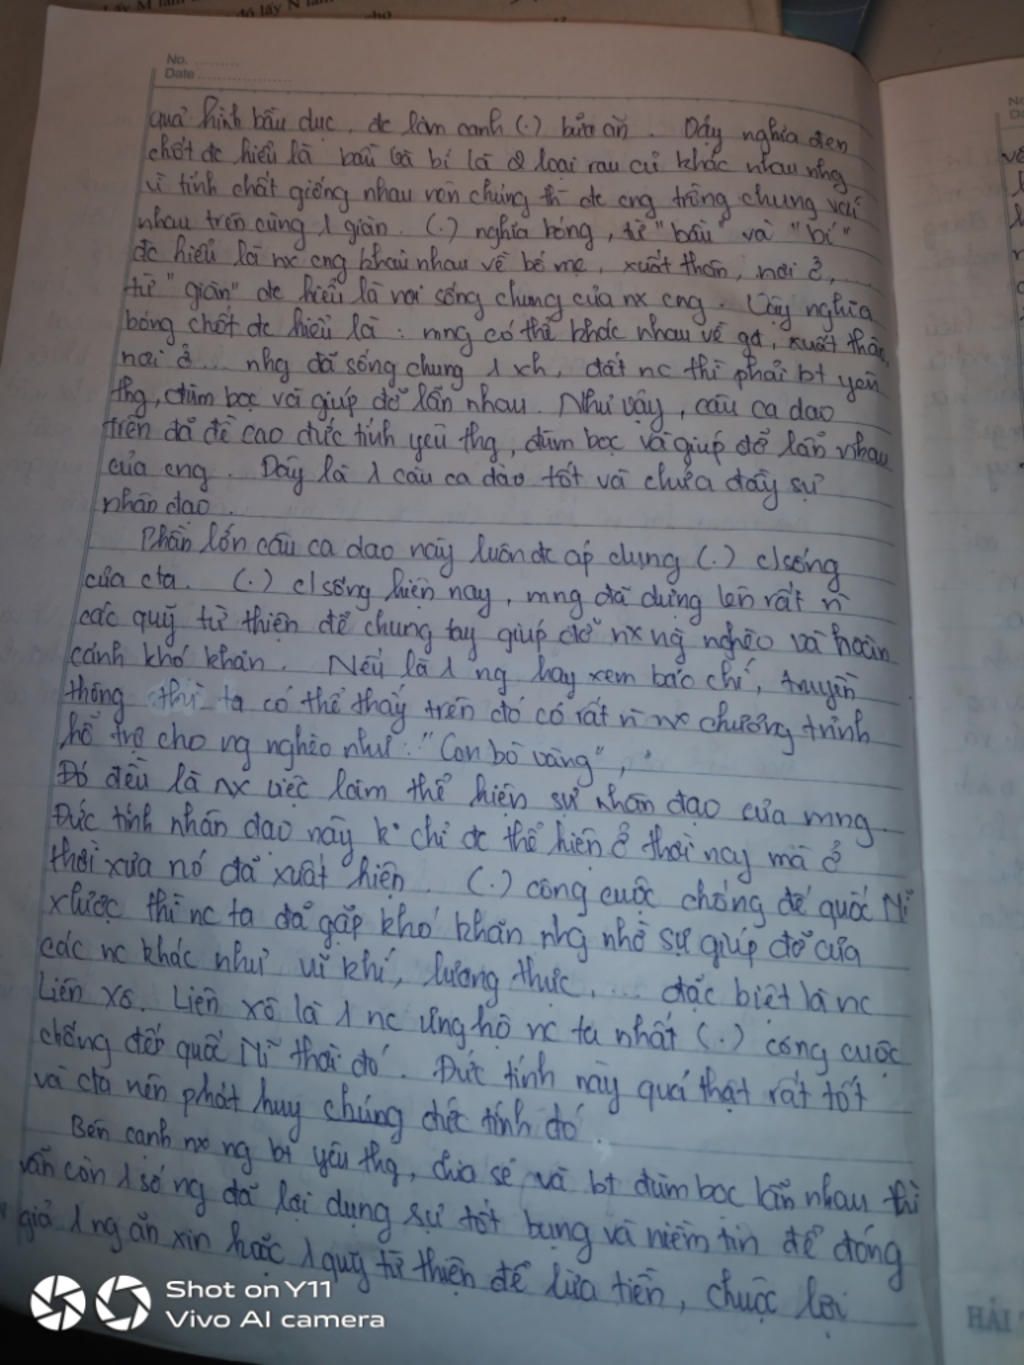 No. ..........
Date ....................
quả hình bầu dục, đc làm canh (.) bữa ăn. Dây nghĩa đen
chốt đc hiểu là bầu và bí là 2 loại rau củ khác nhau nhg
vì tính chất giống nhau nên chúng thì đc cng trồng chung với
nhau trên cùng 1 giàn. (.) nghĩa bóng, từ "bầu" và "bí"
đc hiểu là nx cng khai nhau về bố mẹ, xuất thân, nơi ở,
từ "giàn" đc hiểu là nơi sống chung của nx cng. Vậy nghĩa
bóng chốt đc hiểu là: mng có thể khác nhau về gđ, xuất thân,
nơi ở... nhg đã sống chung 1 xh, đất nc thì phải bt yêu
thg, đùm bọc và giúp đỡ lẫn nhau. Như vậy, câu ca dao
trên đã đề cao đức tính yêu thg, đùm bọc và giúp đỡ lẫn nhau
của cng. Đây là 1 câu ca dao tốt và chứa đầy sự
nhân đạo.
Phần lớn câu ca dao này luôn đc áp dụng (.) c/sống
của cta. (.) c/sống hiện nay, mng đã dựng lên rất n
các quỹ từ thiện để chung tay giúp đỡ nx ng nghèo và hoàn
cảnh khó khăn. Nếu là 1 ng hay xem báo chí, truyền
thông thì ta có thể thấy trên đó có rất n nx chương trình
hỗ trợ cho ng nghèo như: "Con bò vàng",
Đó đều là nx việc làm thể hiện sự nhân đạo của mng
Đức tính nhân đạo này k chỉ đc thể hiện ở thời nay mà ở
thời xưa nó đã xuất hiện. (.) công cuộc chống đế quốc Mĩ
xlược thì nc ta đã gặp khó khăn nhg nhờ sự giúp đỡ của
các nc khác như vũ khí, lương thực,... đặc biệt là nc
Liên xô. Liên xô là 1 nc ủng hộ nc ta nhất (.) công cuộc
chống đế quốc Mĩ thời đó. Đức tính này quả thật rất tốt
và cta nên phát huy chúng đức tính đó.
Bên cạnh nx ng bt yêu thg, chia sẻ và bt đùm bọc lẫn nhau thì
vẫn còn 1 số ng đã lợi dụng sự tốt bụng và niềm tin để đóng
giả 1 ng ăn xin hoặc 1 quỹ từ thiện để lừa tiền, chuộc lợi
Shot on Y11
Vivo AI camera